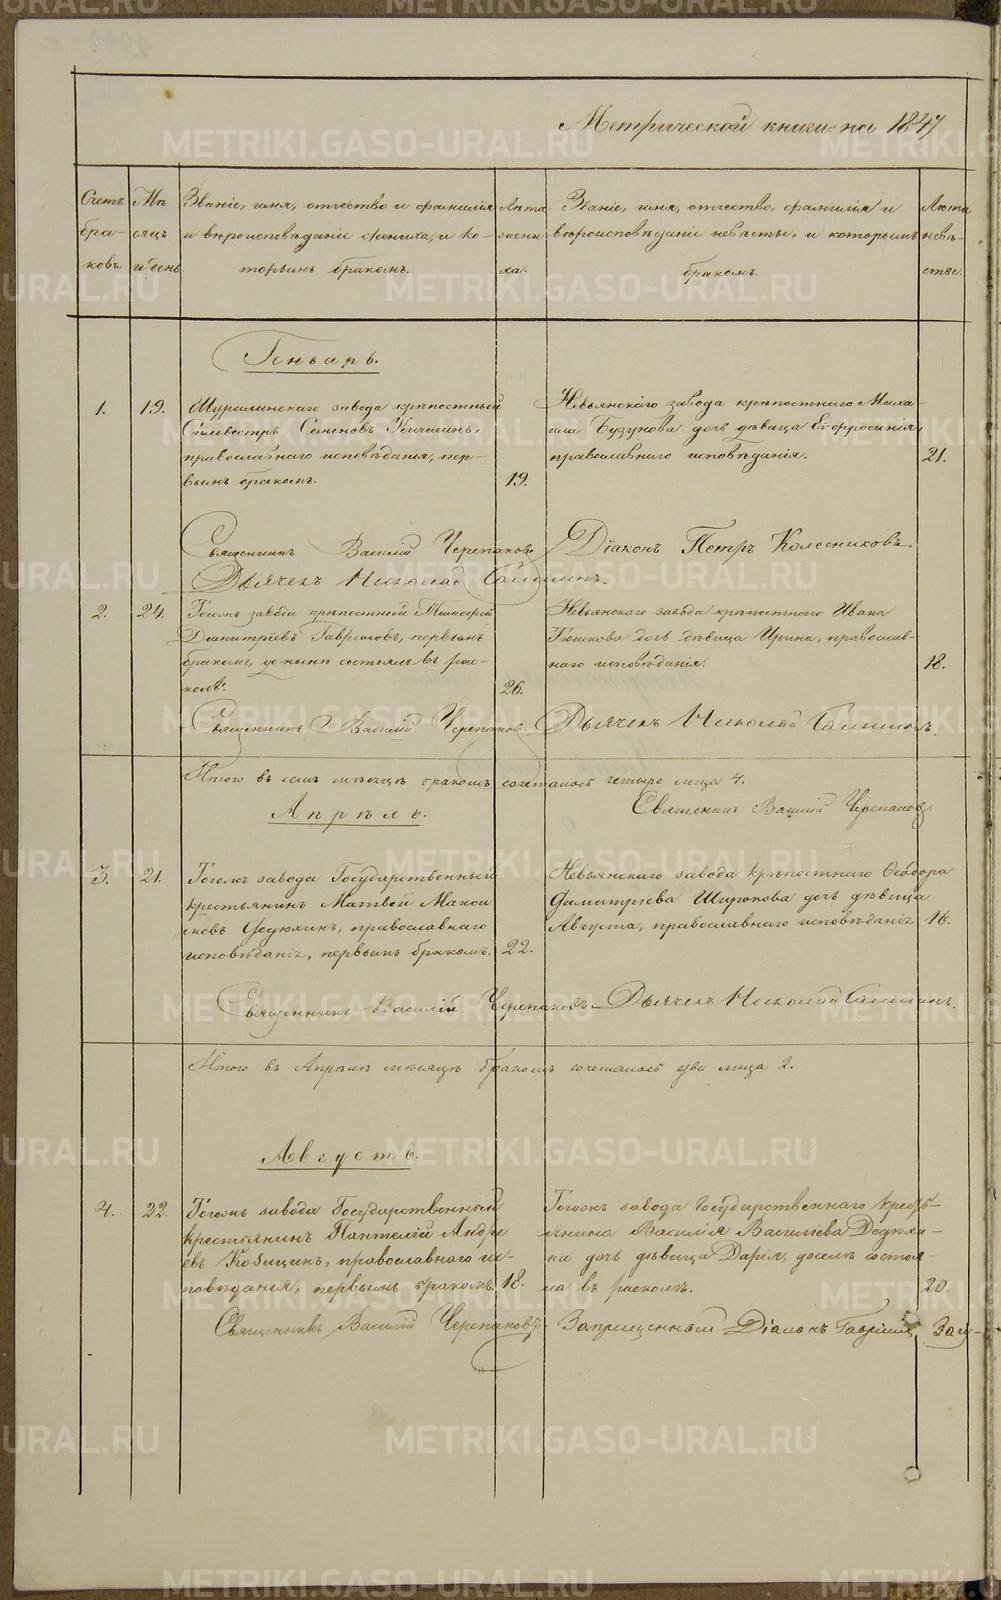 Метрической книги на 1847
Счетъ бра- ковъ.
Мѣ сяцъ и день
Званіе, имя, отчество и фамилія
и вѣроисповѣданіе жениха, и ко-
торымъ бракомъ.
Лѣта жени ха.
Званіе, имя, отчество, фамилія и
вѣроисповѣданіе невѣсты, и которымъ
бракомъ.
Лѣта невѣ- сты.
Генварь.
1. 19.
Шуралинскаго завода крѣпостный
Сильвестръ Семеновъ
православнаго исповѣданія, пер-
вымъ бракомъ. 19.
Невьянскаго завода крѣпостнаго Миха-
ила Бузунова дочь дѣвица Евфросинія,
православнаго исповѣданія. 21.
Священникъ Василій Черепановъ. Діаконъ Петръ Колесниковъ.
Дьячекъ Николай
2. 24.
Тогожъ завода крѣпостный
Димитріевъ Гавриловъ, первымъ
бракомъ, донынѣ состоялъ въ рас-
колѣ. 26.
Невьянскаго завода крѣпостнаго Ивана
дочь дѣвица Ирина, православ-
наго исповѣданія. 18.
Священникъ Василій Черепановъ. Дьячекъ Николай
Итого въ семъ мѣсяцѣ бракомъ сочеталось четыре лица 4.
Священникъ Василій Черепановъ
Апрѣль.
3. 21.
Тогожъ завода Государственный
крестьянинъ Матвей Макси
мовъ Федюхинъ, православнаго
исповѣданія, первымъ бракомъ. 22.
Невьянскаго завода крѣпостнаго Феодора
Димитріева Широкова дочь дѣвица
Августа, православнаго исповѣданія 16.
Священникъ Василій Черепановъ Дьячекъ Николай
Итого въ Апрѣлѣ мѣсяцѣ бракомъ сочеталось два лица 2.
Августъ.
4. 22.
Тогожъ завода Государственный
крестьянинъ Пантелій Андре
евъ православнаго ис-
повѣданія, первымъ бракомъ. 18.
Тогожъ завода Государственнаго кресть-
янина Василія Васильева
на дочь дѣвица Дарія, доселѣ состоя-
ла въ расколѣ. 20.
Священникъ Василій Черепановъ. Запрещенный Діаконъ Гавріилъ
METRIKI.GASO-URAL.RU